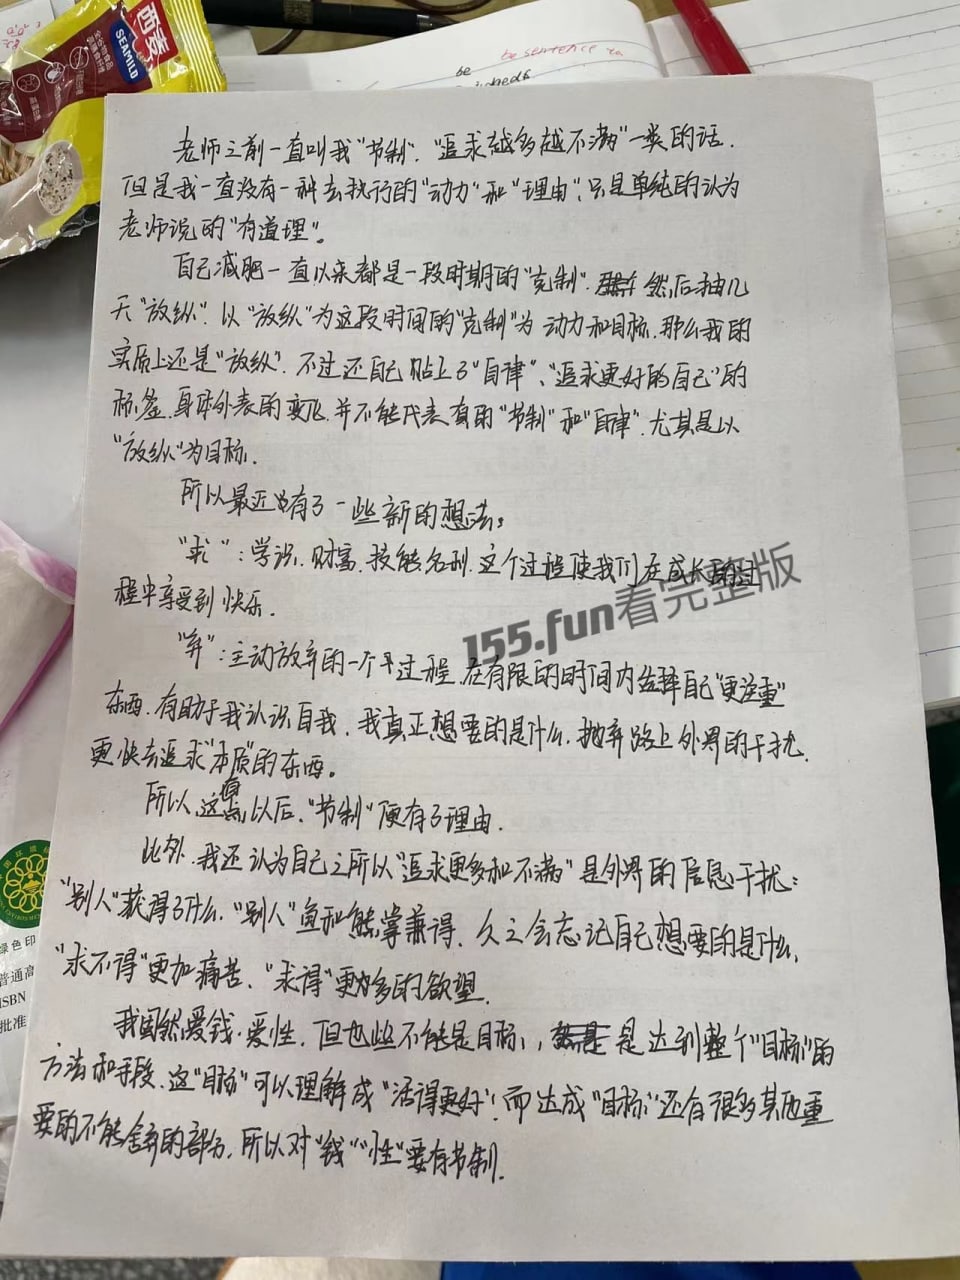 西麦
SEAMILD
be sentence to
be
老师之前一直叫我“节制”.“追求越多越不满”一类的话.
但是我一直没有一种去执行的“动力”和“理由”,只是单纯的认为
老师说的“有道理”。
自己减肥一直以来都是一段时期的“克制”.然后抽几
天“放纵”.以“放纵”为这段时间的“克制”为动力和目标.那么我的
实质上还是“放纵”.不过还自己贴上了“自律”、“追求更好的自己”的
标签.身体外表的变化.并不能代表真的“节制”和“自律”.尤其是以
“放纵”为目标.
所以最近也有了一些新的想法。
“求”:学识.财富.技能名利.这个过程使我们在成长的过
程中享受到快乐.
155.fun看完整版
“弃”:主动放弃的一个过程.在有限的时间内选择自己“更注重”
东西.有助于我认识自我.我真正想要的是什么.抛弃路上外界的干扰.
更快去追求“本质”的东西。
所以,这有点以后,“节制”便有了理由.
此外.我还认为自己之所以“追求更多和不满”是外界的信息干扰:
“别人”获得了什么.“别人”鱼和熊掌兼得.久之会忘记自己想要的是什么,
“求不得”更加痛苦、“求得”更多的欲望.
我固然爱钱.爱性.但也些不能是目标,,是达到整个“目标”的
方法和手段.这“目标”可以理解成“活得更好”!而达成“目标”还有很多其他重
要的不能舍弃的部分.所以对“钱”“性”要有节制.
绿色印
普通高
ISBN
批准